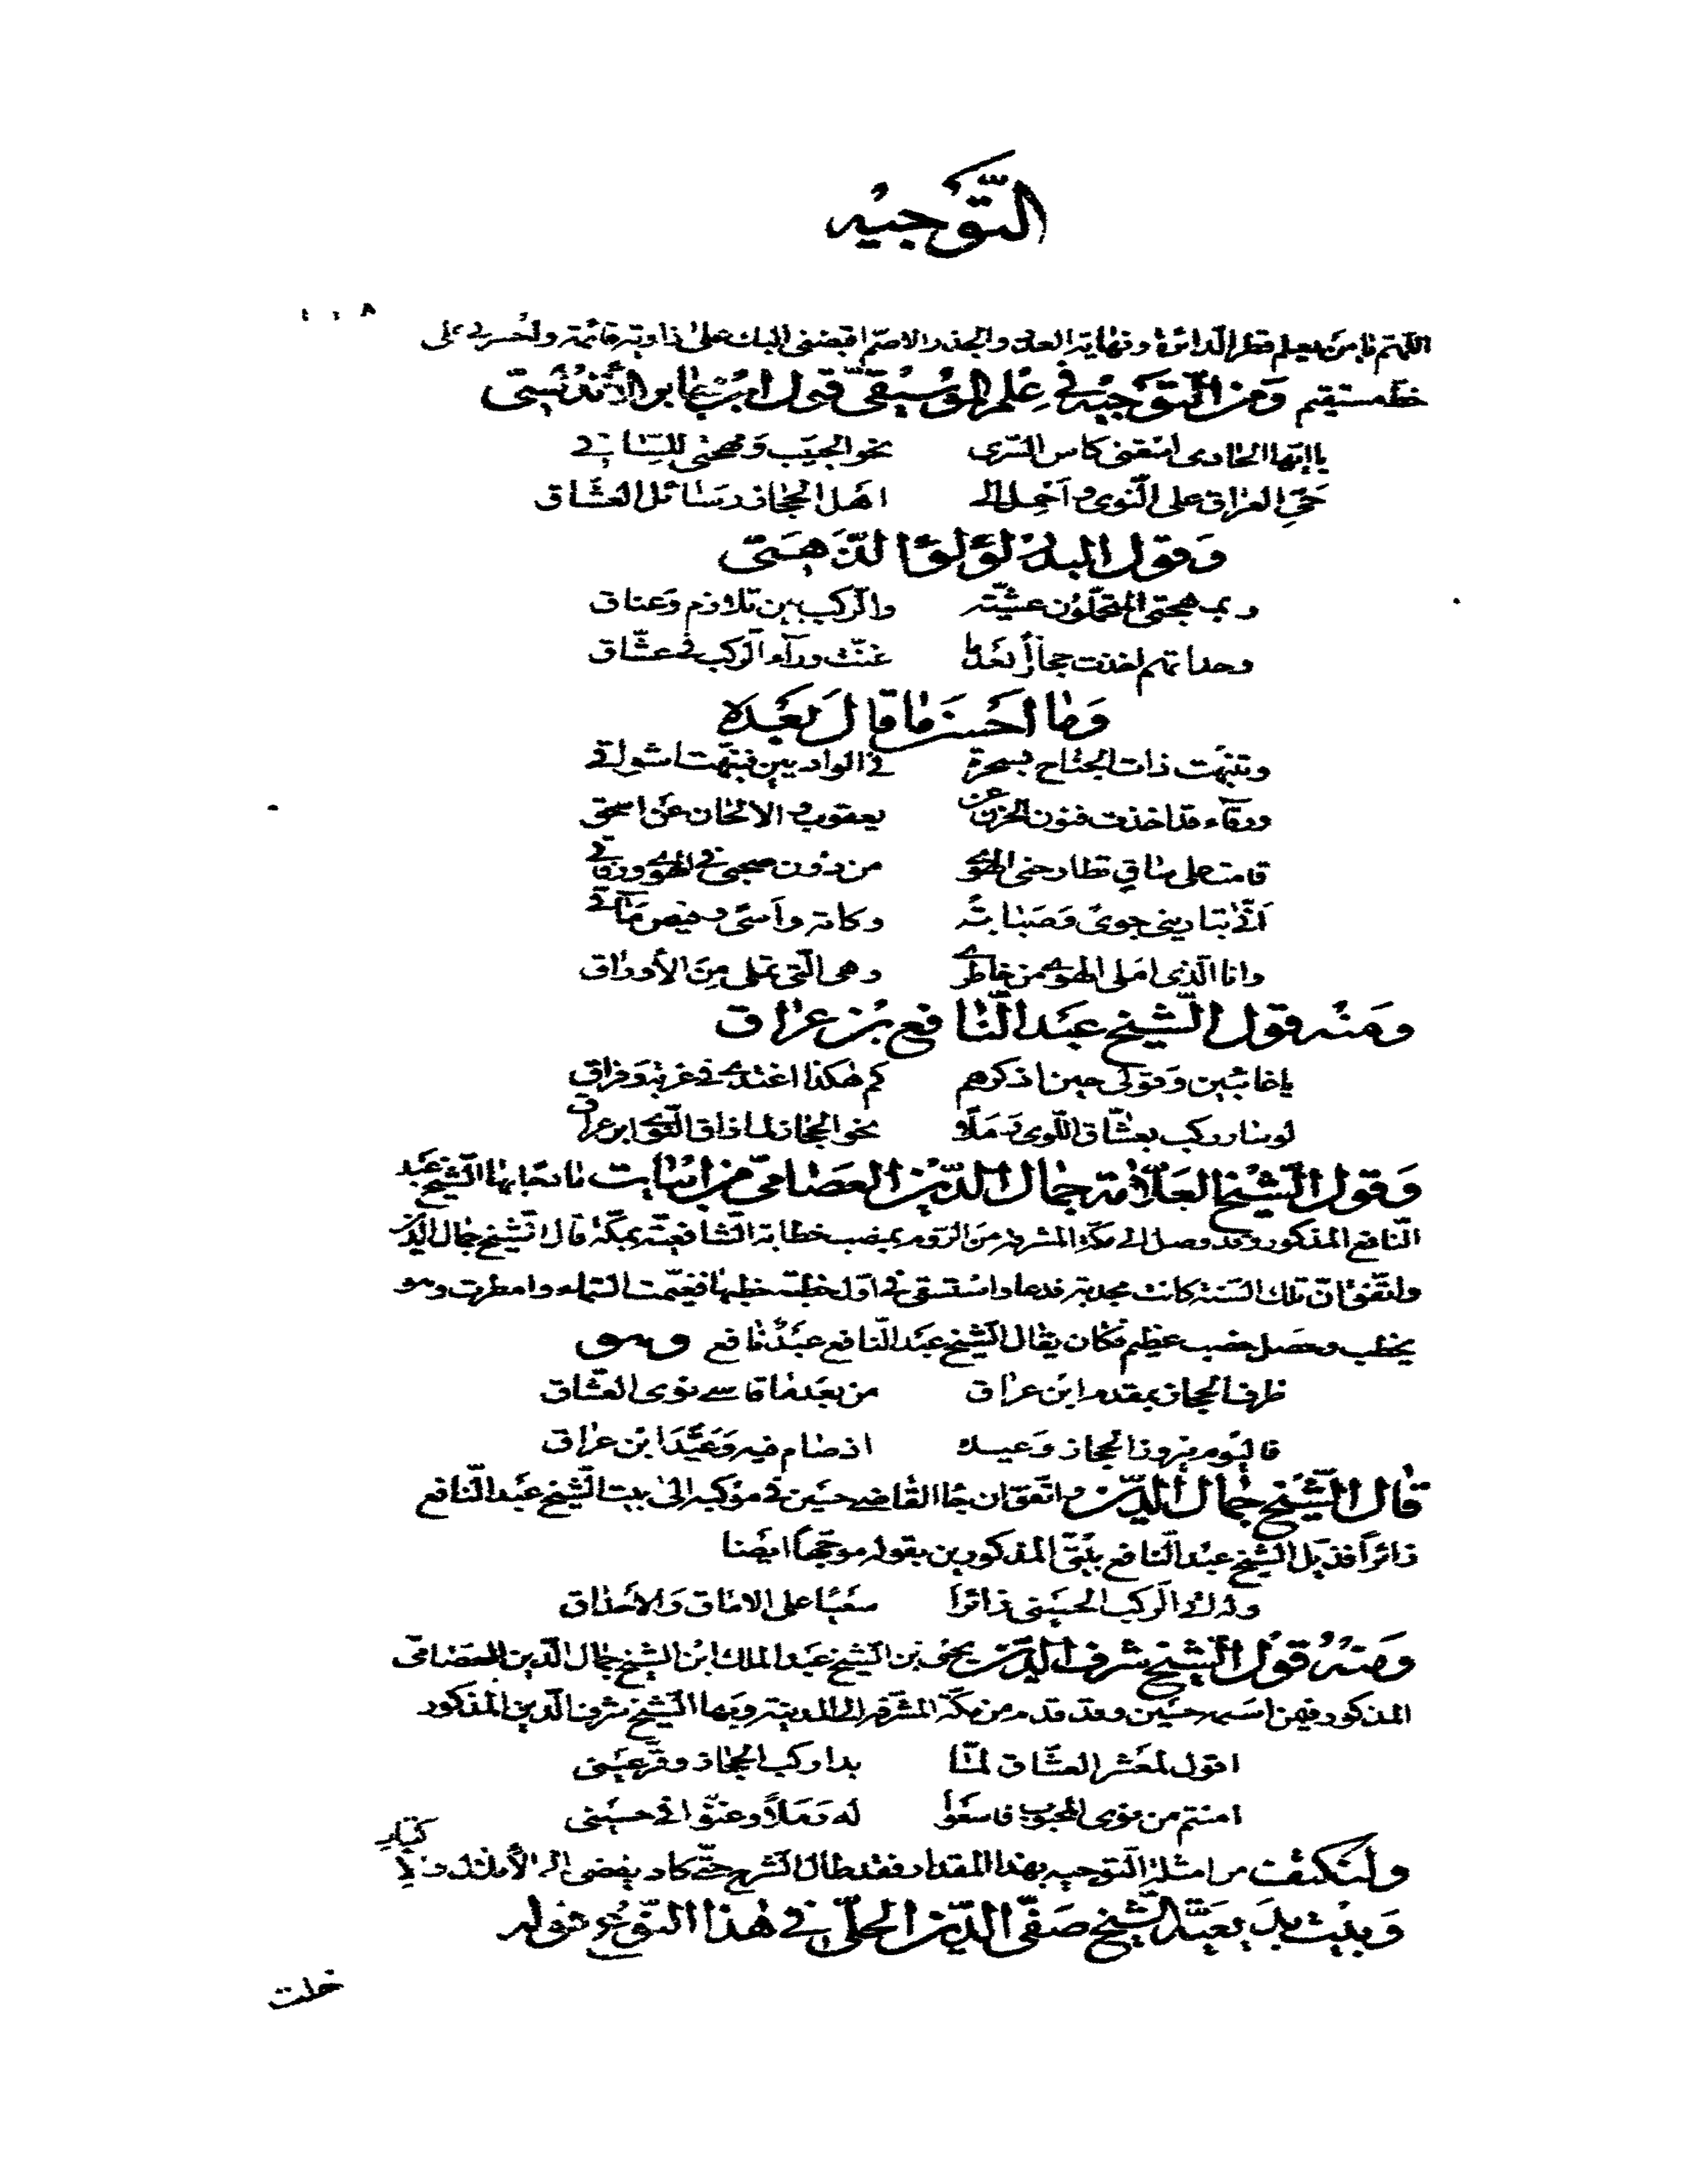 التّوجيه
اللّهمّ يا من يعلم قطر الدائرة ونهاية العدد والجذر الاصمّ اقبضنى اليك على زاوية قائمة واحشرنى على
خط مستقيم ومن التّوجيه فى علم الموسيقى قول ابن جابر الأندلسىّ
يا ايّها الحادى اسقنى كاس السّرى نحو الحبيب ومهجتى للسّاقى
حىّ العراق على النّوى واحمل الى اهل الحجاز رسائل العشّاق
وقول البدر لؤلؤ الذّهبىّ
وبمهجتى المتحمّلون عشيّة والرّكب بين تلازم وعناق
وحداتهم اخذت حجازًا بعدما غنّت وراء الرّكب فى عشّاق
وما احسن ما قال بعده
وتنبّهت ذات الجناح بسحرة فى الواديين فنبّهت اشواقى
ورقاء قد اخذت فنون الحزن عن يعقوب والالحان عن اسحق
قامت على ساق تطارحنى الهوى من دون صحبى فى الهوى ورفاقى
انّى تبارينى جوى وصبابة وكآبة واسى وفيض مآقى
وانا الّذى املى الهوى من خاطرى وهى الّتى تملى من الأوراق
ومنه قول الشّيخ عبد النّافع بن عراق
يا غائبين وقولى حين اذكرهم كم هكذا اغتدى فى غربة وفراق
لو سار ركب بعشّاق اللّوى رملا نحو الحجاز لما ذاق النّوى ابن عراق
وقول الشّيخ العلاّمة جمال الدّين العصامىّ من ابيات مادحًا بها الشّيخ عبد
النّافع المذكور وقد وصل الى مكّة المشرفة من الرّوم بمنصب خطابة الشّافعيّة بمكّة قال الشّيخ جمال الدّين
واتّفق انّ تلك السّنة كانت مجدبة فدعا واستسقى فى اوّل خطبة خطبها فغيّمت السّماء وامطرت وهو
يخطب وحصل خصب عظيم فكان يقال الشّيخ عبد النّافع عبدٌ نافع وهو
طرف الحجاز بمقدم ابن عراق من بعد ما قاسى نوى العشّاق
فاليوم نيروز الحجاز وعيده اذ صام فيه وعيّد ابن عراق
قال الشّيخ جمال الدّين واتّفق ان جا القاضى حسين فى موكبه الى بيت الشّيخ عبد النّافع
زائرًا فذيّل الشّيخ عبد النّافع بيتىّ المذكورين بقوله موجّهًا ايضا
ولذلك الرّكب الحسينى زائرًا سعيًا على الاماق والأحداق
ومنه قول الشّيخ شرف الدّين يحيى بن الشّيخ عبد الملك ابن الشّيخ جمال الدّين العصامىّ
المذكور فيمن اسمه حسين وقد قدم من مكّة المشرّفة الى المدينة وبها الشّيخ شرف الدّين المذكور
اقول لمعشر العشّاق لمّا بدا ركب الحجاز وقرّ عينى
امنتم من نوى المحبوب فاسعوا له رملاً وغنّوا فى حسينى
ولنكتف من امثلة التّوجيه بهذا المقدار فقد طال الشّرح حتّى كاد يفضى الى الأملال
وبيت بديعيّة الشّيخ صفىّ الدّين الحلّى فى هذا النّوع قوله
خلت